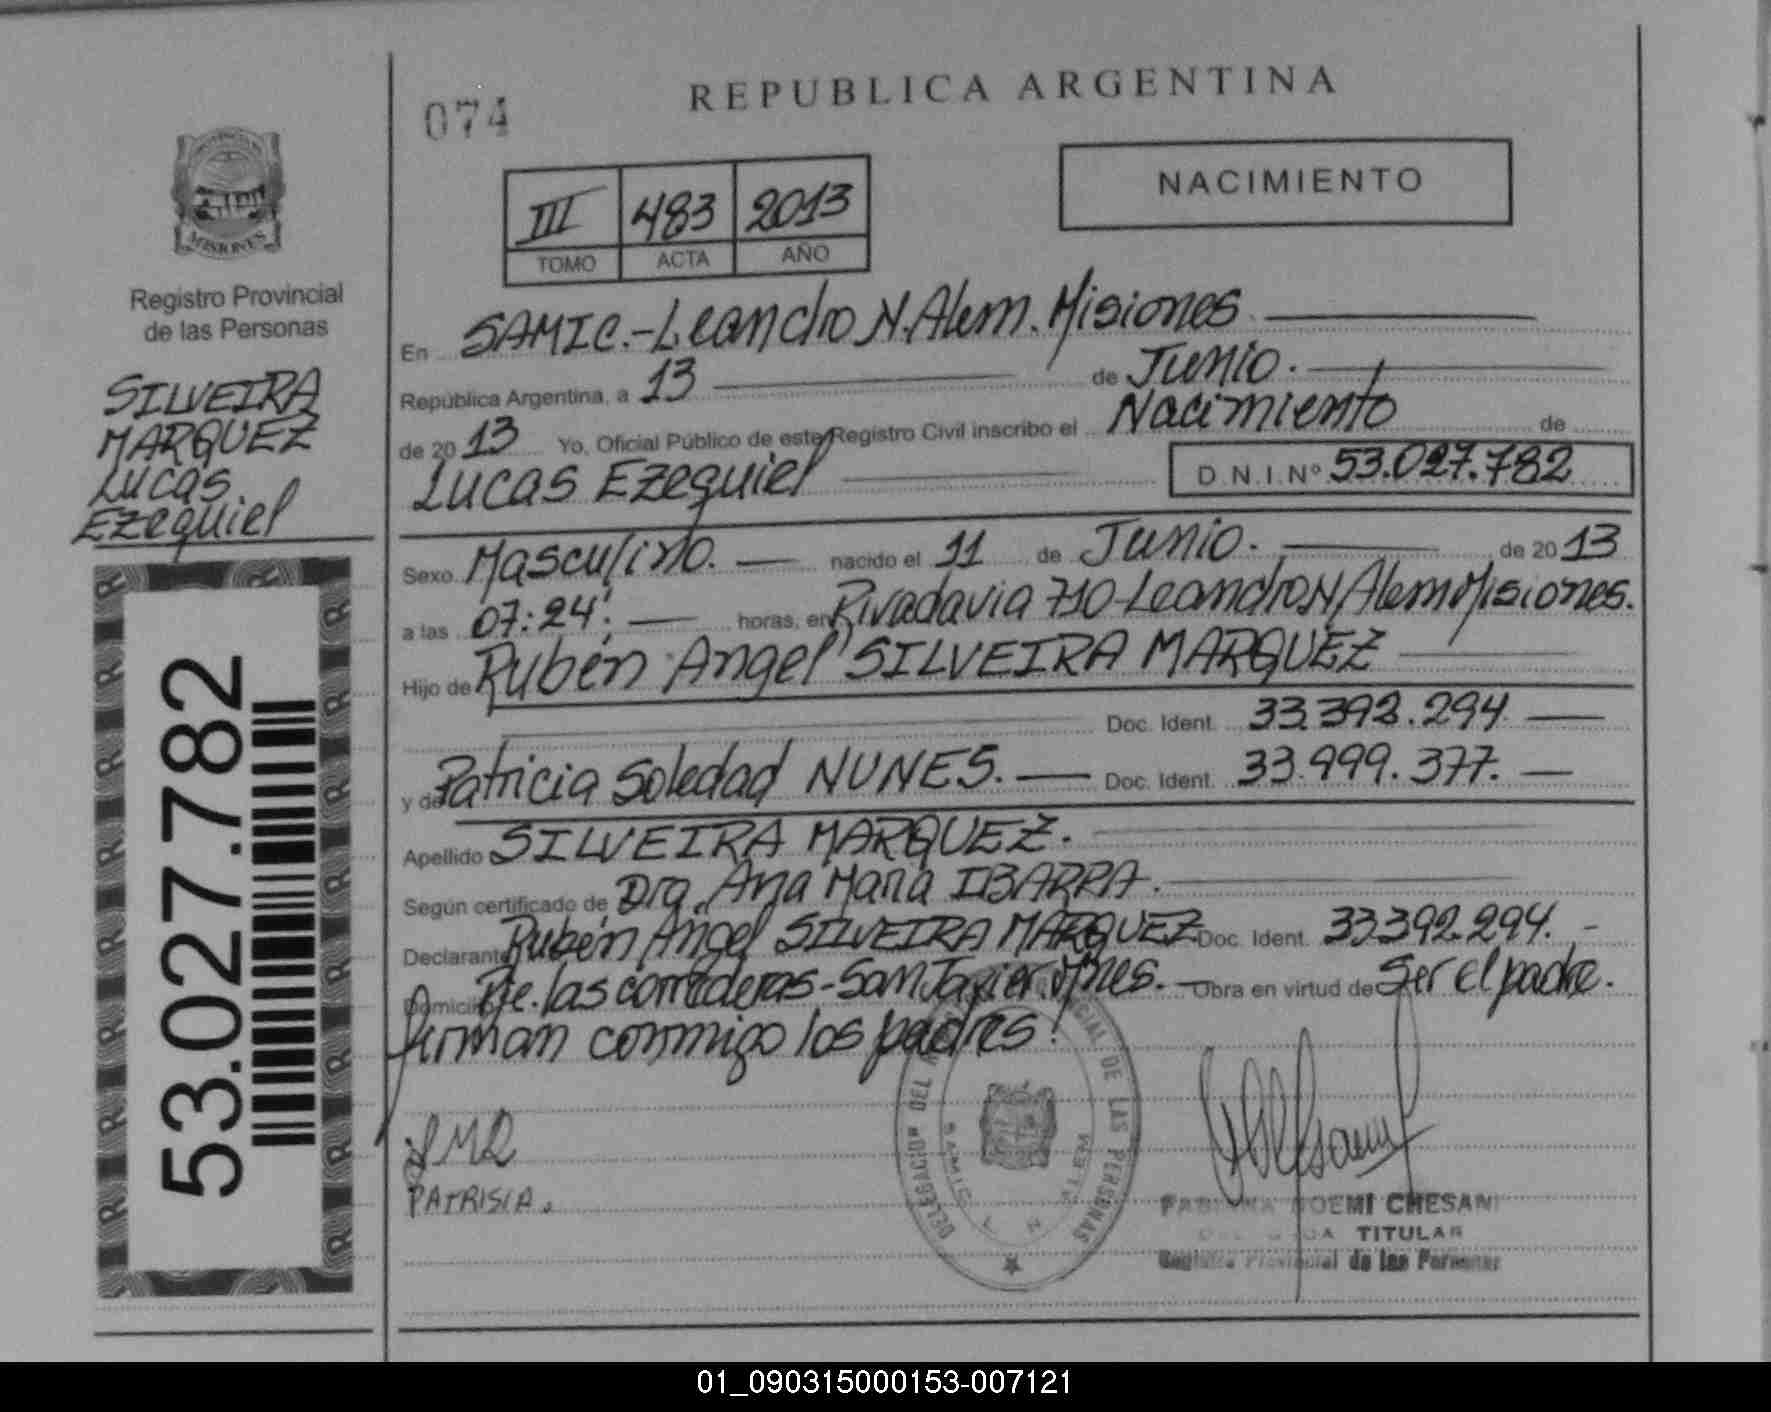 074
REPUBLICA ARGENTINA
NACIMIENTO
III 483 2013
TOMO ACTA AÑO
MISIONES
Registro Provincial
de las Personas
SILVEIRA
MARQUEZ
Lucas
Ezequiel
53.027.782
En SAMIC.-Leandro N. Alem. Misiones
República Argentina, a 13 de Junio.
de 2013 Yo, Oficial Público de este Registro Civil inscribo el Nacimiento de
Lucas Ezequiel D.N.I.Nº 53.027.782
Sexo Masculino. nacido el 11 de Junio. de 2013
a las 07:24'. horas, en Rivadavia 710-Leandro N Alem Misiones.
Hijo de Rubén Angel SILVEIRA MARQUEZ
Doc. Ident. 33.392.294
y de Patricia Soledad NUNES. Doc. Ident. 33.999.377.
Apellido SILVEIRA MARQUEZ.
Según certificado de Dra. Ana María IBARRA.
Declarante Rubén Angel SILVEIRA MARQUEZ Doc. Ident. 33.392.294.-
Domicilio Pje. las corredoras-San Javier. Mnes. Obra en virtud de Ser el padre.
firman conmigo los padres.
PATRISIA.
NOEMI CHESANI
TITULAR
Registro Provincial de las Personas
01_090315000153-007121